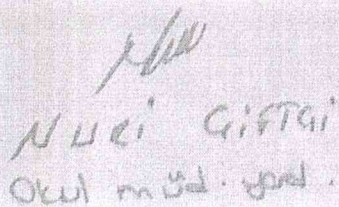 Nuri Çiftçi
Okul müd. yard.